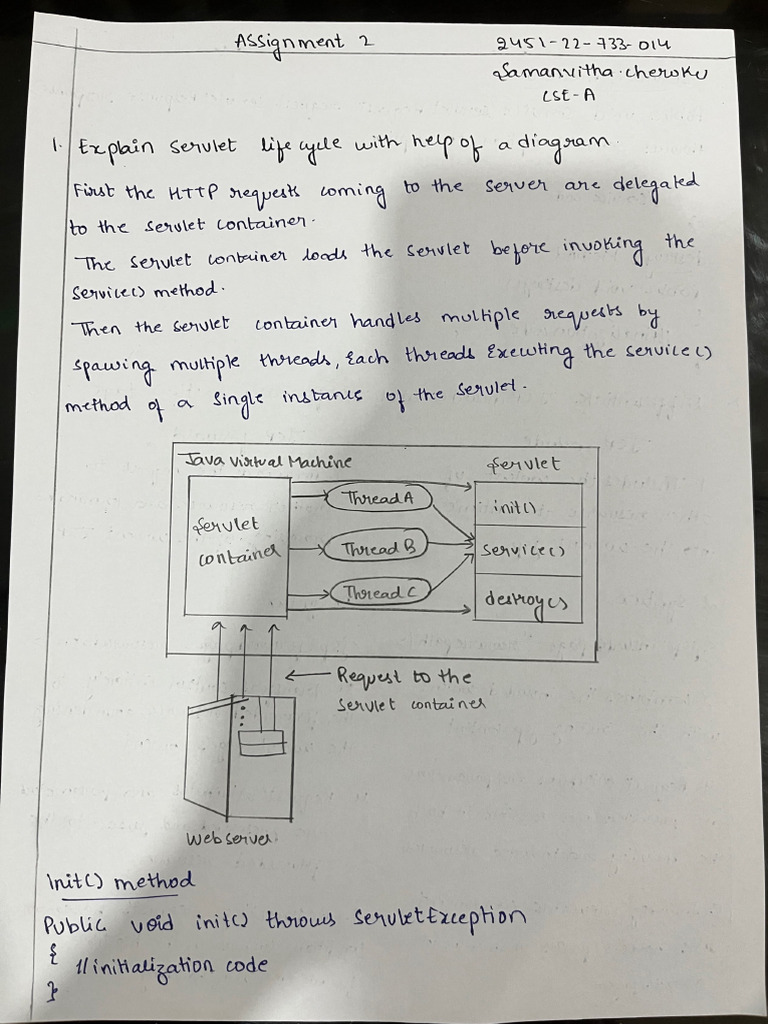 Assignment 2
2451-22-733-014
Samanvitha.cheroku
CSE-A
1. Explain servlet life cycle with help of a diagram.
First the HTTP requests coming to the server are delegated
to the servlet container.
The servlet container loads the servlet before invoking the
service() method.
Then the servlet container handles multiple requests by
spawing multiple threads, Each threads Executing the service()
method of a single instance of the servlet.
Java Virtual Machine
Servlet
Servlet
container
Thread A
Thread B
Thread C
init()
service()
destroy()
Request to the
servlet container
Web server
Init() method
Public void init() throws servletException
{
//initialization code
}